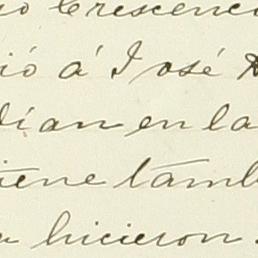 so Crescenci
ió á José R
dían en la
tiene tamb
a hicieron.